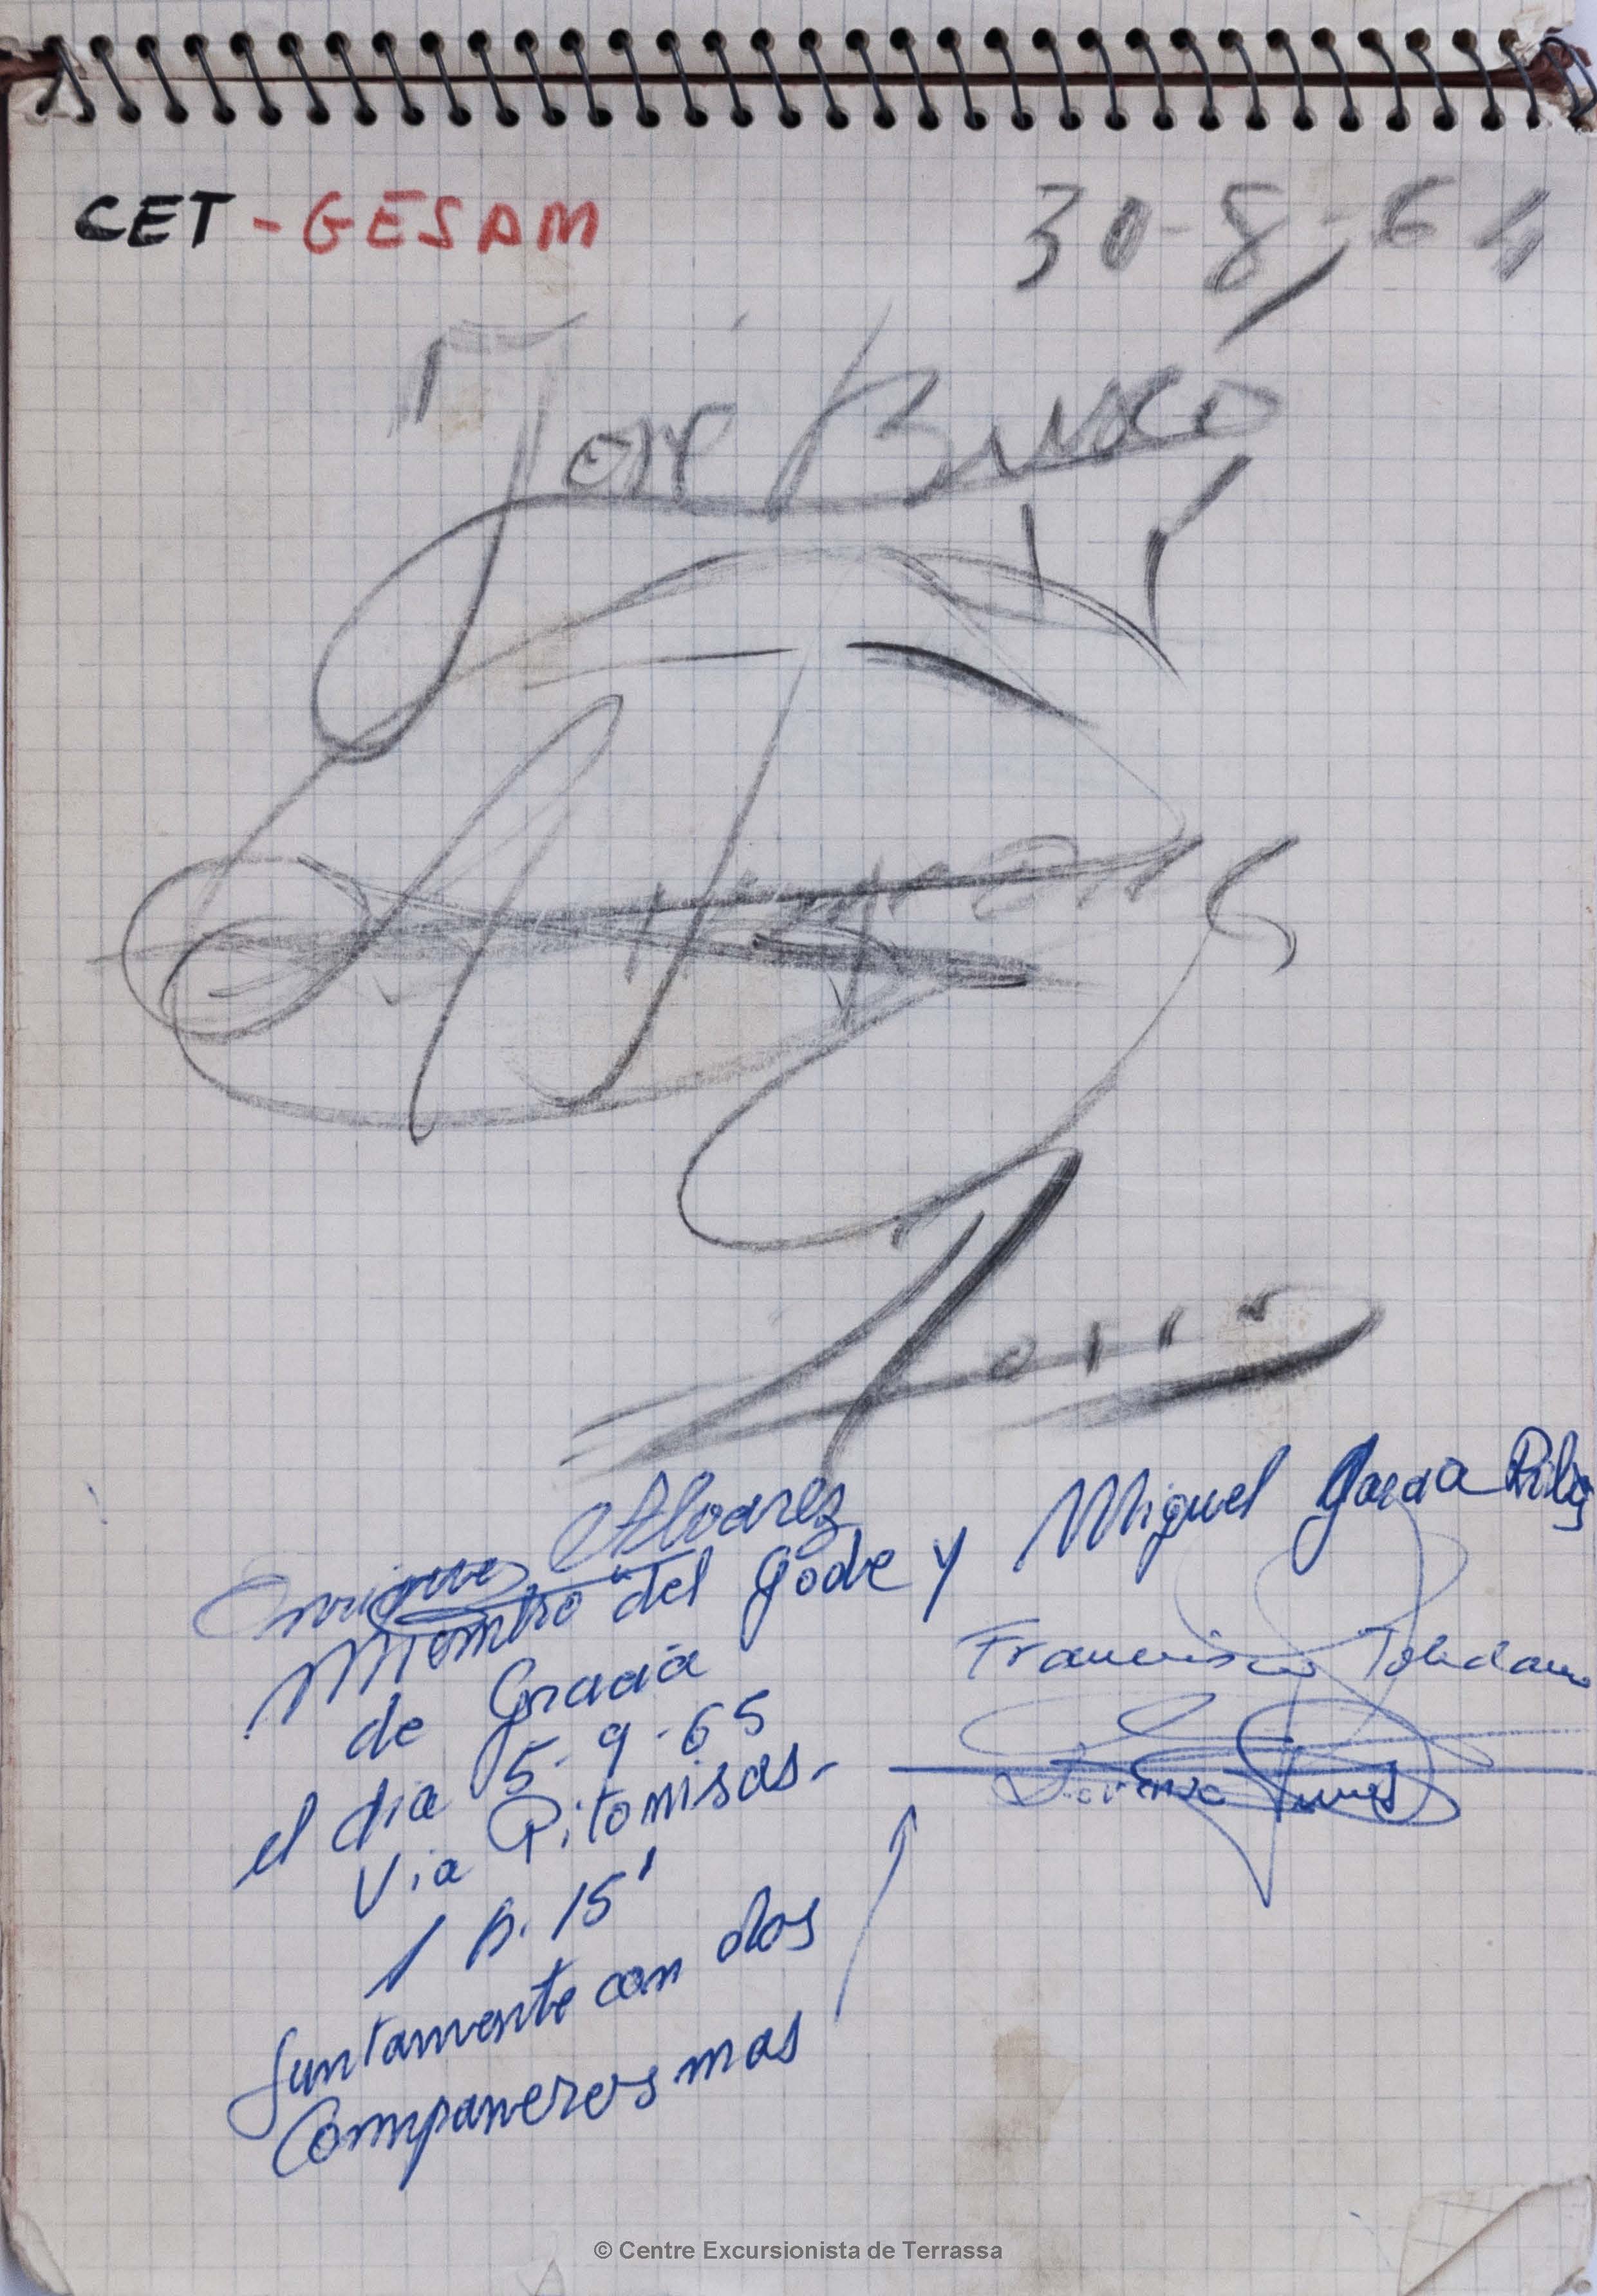 CET - GESAM
30-8-64
José Buscó
Enrique Alvarez
Miembro del Gode y Miguel Garcia
de Gracia
Francisco Toledano
el dia 5-9-65
Via Pitonisas-
Lorenzo
1 h. 15'
Juntamente con dos
Companeros mas
© Centre Excursionista de Terrassa